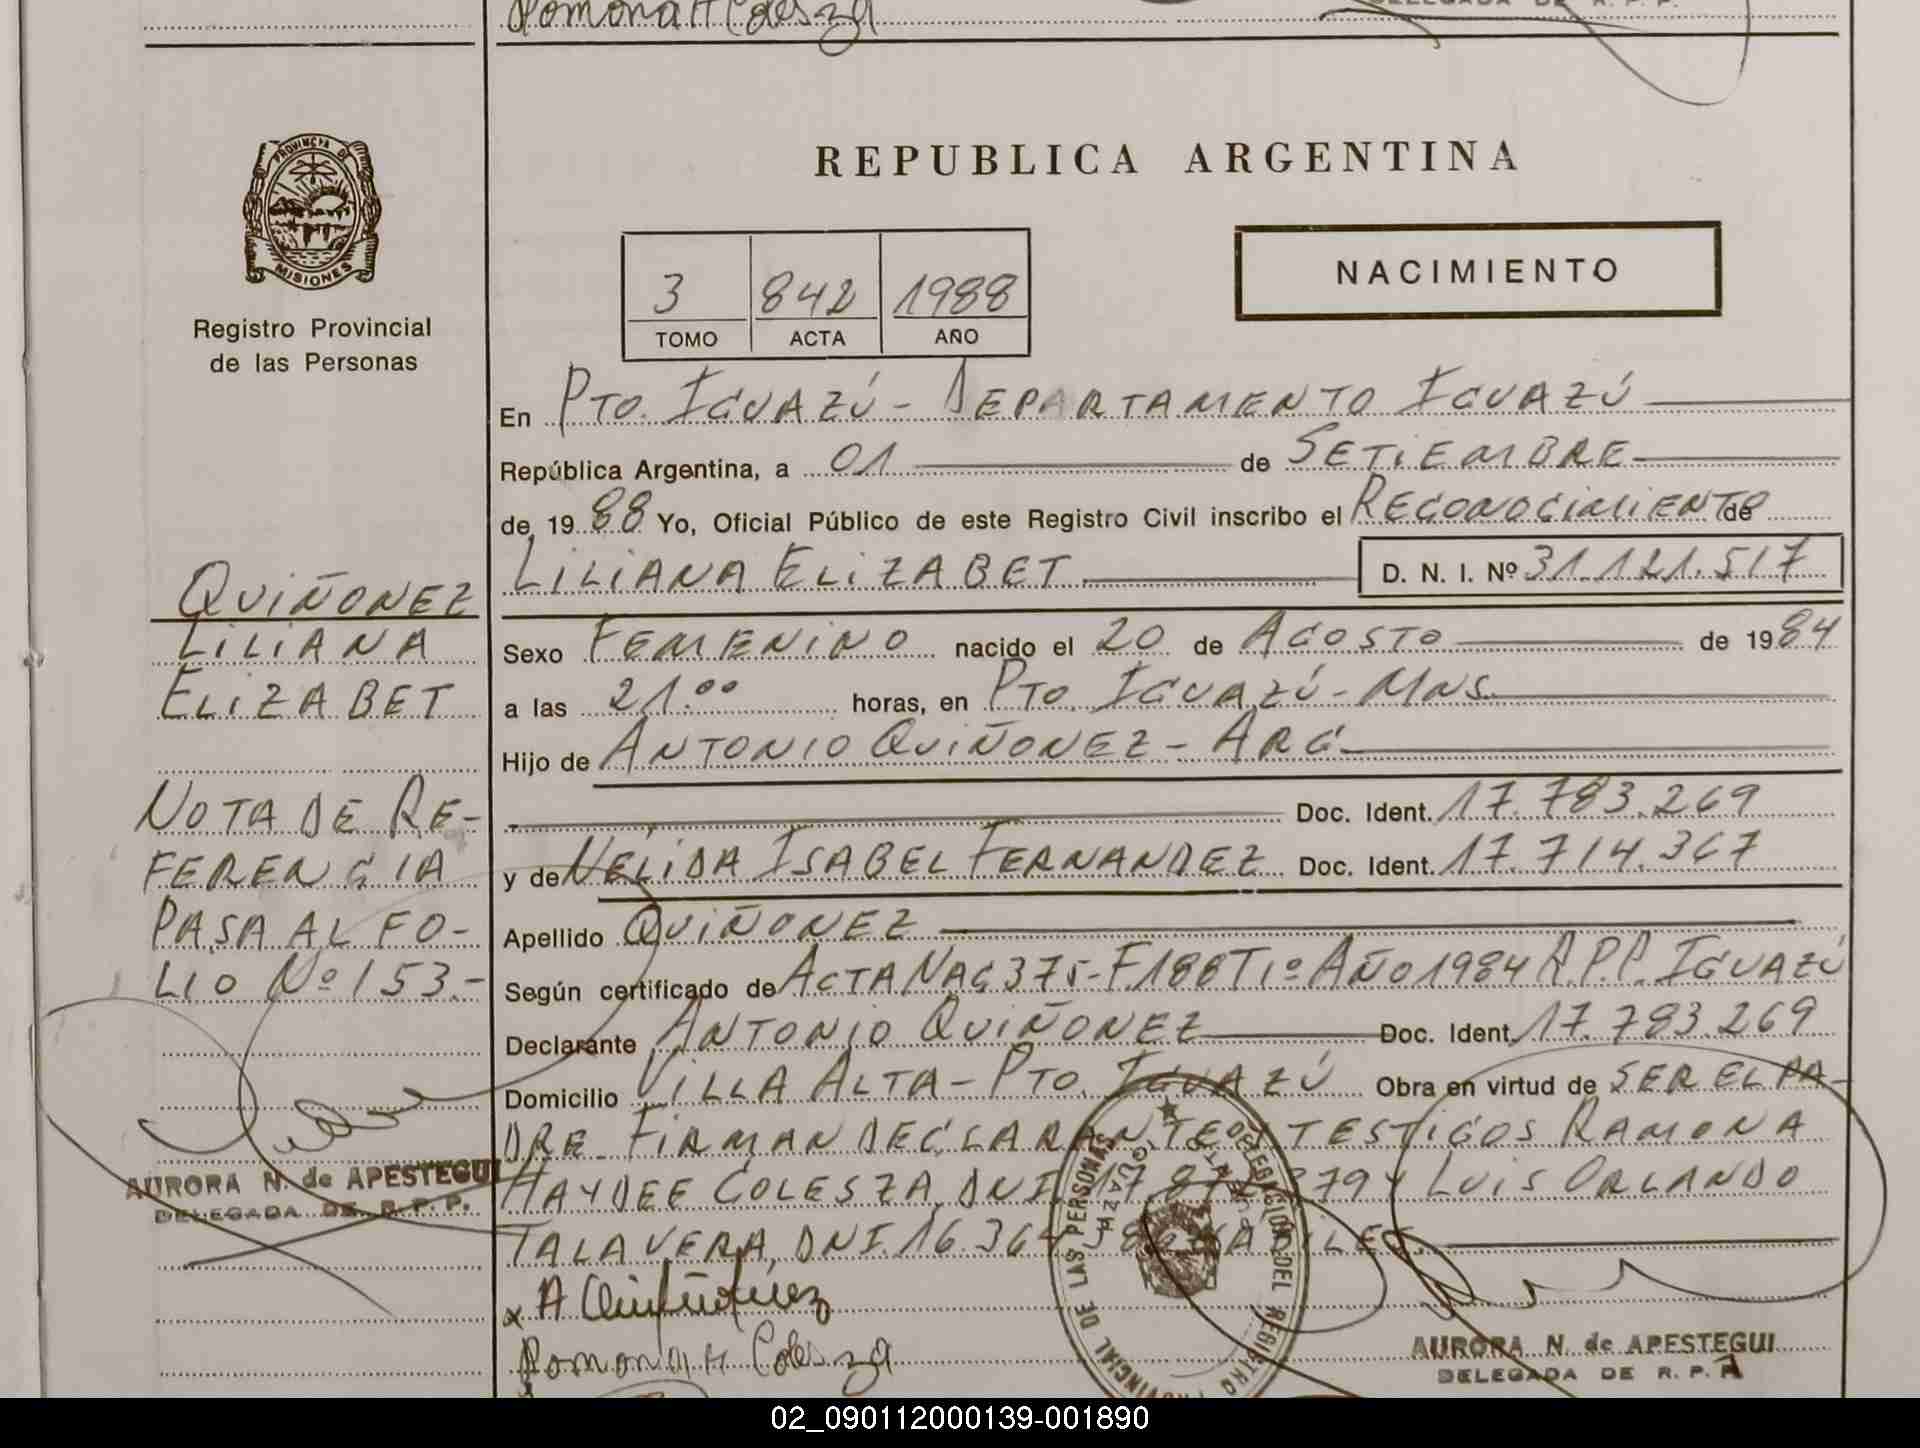 Romona H Colesza
DELEGADA DE R. P. P.
PROVINCIA DE
MISIONES
Registro Provincial
de las Personas
REPUBLICA ARGENTINA
3 842 1988
TOMO ACTA AÑO
NACIMIENTO
En PTO. IGUAZÚ - DEPARTAMENTO IGUAZÚ
República Argentina, a 01 de SETIEMBRE
de 19 88 Yo, Oficial Público de este Registro Civil inscribo el RECONOCIMIENTO de
LILIANA ELIZABET D. N. I. Nº 31.121.517
QUIÑONEZ
LILIANA
ELIZABET
NOTA DE RE-
FERENCIA
PASA AL FO-
LIO Nº 153.-
AURORA N. de APESTEGUI
DELEGADA DE R. P. P.
Sexo FEMENINO nacido el 20 de AGOSTO de 1984
a las 21.00 horas, en PTO. IGUAZÚ - MNS.
Hijo de ANTONIO QUIÑONEZ - ARG.
Doc. Ident. 17.783.269
y de NÉLIDA ISABEL FERNANDEZ Doc. Ident. 17.714.367
Apellido QUIÑONEZ
Según certificado de ACTA NAC 375-F188 T1º AÑO 1984 R.P.P. IGUAZÚ
Declarante ANTONIO QUIÑONEZ Doc. Ident. 17.783.269
Domicilio VILLA ALTA - PTO. IGUAZÚ Obra en virtud de SER EL PA-
DRE. FIRMAN DECLARANTE Y TESTIGOS RAMONA
HAYDEE COLESZA, DNI 17.87 379 Y LUIS ORLANDO
TALAVERA, DNI 16.364
x A Quiñonez
Romona H Colesza
DELEGACION DEL REGISTRO PROVINCIAL DE LAS PERSONAS
AURORA N. de APESTEGUI
DELEGADA DE R. P. P.
02_090112000139-001890